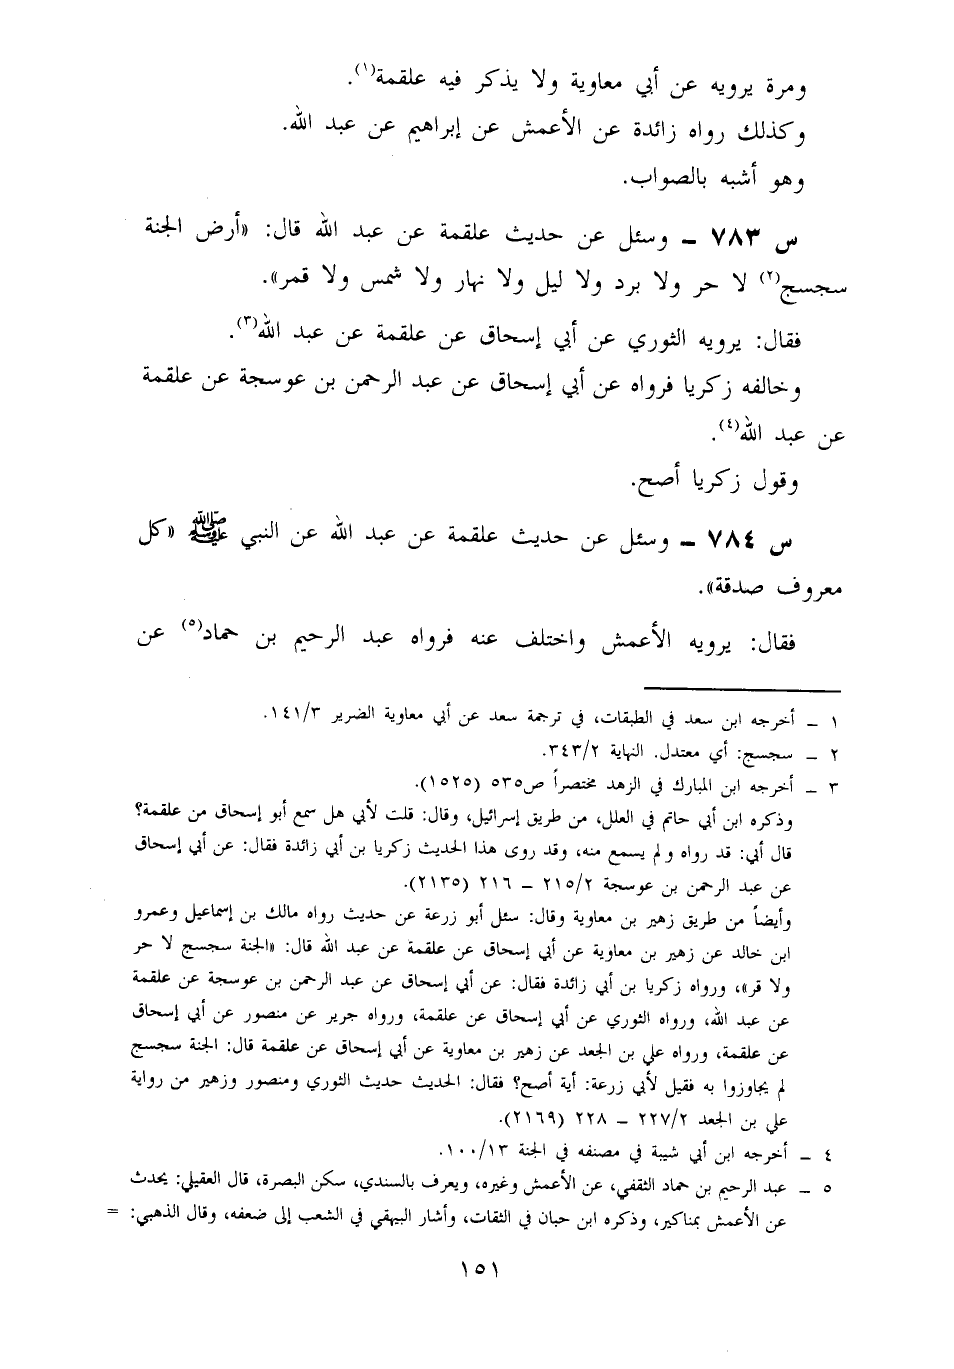 ومرة يرويه عن أبي معاوية ولا يذكر فيه علقمة(١).
وكذلك رواه زائدة عن الأعمش عن إبراهيم عن عبد الله.
وهو أشبه بالصواب.
س ٧٨٣ – وسئل عن حديث علقمة عن عبد الله قال: «أرض الجنة
سجسج(٢) لا حر ولا برد ولا ليل ولا نهار ولا شمس ولا قمر».
فقال: يرويه الثوري عن أبي إسحاق عن علقمة عن عبد الله(٣).
وخالفه زكريا فرواه عن أبي إسحاق عن عبد الرحمن بن عوسجة عن علقمة
عن عبد الله(٤).
وقول زكريا أصح.
س ٧٨٤ – وسئل عن حديث علقمة عن عبد الله عن النبي ﷺ «كل
معروف صدقة».
فقال: يرويه الأعمش واختلف عنه فرواه عبد الرحيم بن حماد(٥) عن
١ – أخرجه ابن سعد في الطبقات، في ترجمة سعد عن أبي معاوية الضرير ١٤١/٣.
٢ – سجسج: أي معتدل. النهاية ٣٤٣/٢.
٣ – أخرجه ابن المبارك في الزهد مختصراً ص٥٣٥ (١٥٢٥).
وذكره ابن أبي حاتم في العلل، من طريق إسرائيل، وقال: قلت لأبي هل سمع أبو إسحاق من علقمة؟
قال أبي: قد رواه ولم يسمع منه، وقد روى هذا الحديث زكريا بن أبي زائدة فقال: عن أبي إسحاق
عن عبد الرحمن بن عوسجة ٢١٥/٢ – ٢١٦ (٢١٣٥).
وأيضاً من طريق زهير بن معاوية وقال: سئل أبو زرعة عن حديث رواه مالك بن إسماعيل وعمرو
ابن خالد عن زهير بن معاوية عن أبي إسحاق عن علقمة عن عبد الله قال: «الجنة سجسج لا حر
ولا قر»، ورواه زكريا بن أبي زائدة فقال: عن أبي إسحاق عن عبد الرحمن بن عوسجة عن علقمة
عن عبد الله، ورواه الثوري عن أبي إسحاق عن علقمة، ورواه جرير عن منصور عن أبي إسحاق
عن علقمة، ورواه علي بن الجعد عن زهير بن معاوية عن أبي إسحاق عن علقمة قال: الجنة سجسج
لم يجاوزوا به فقيل لأبي زرعة: أية أصح؟ فقال: الحديث حديث الثوري ومنصور وزهير من رواية
علي بن الجعد ٢٢٧/٢ – ٢٢٨ (٢١٦٩).
٤ – أخرجه ابن أبي شيبة في مصنفه في الجنة ١٠٠/١٣.
٥ – عبد الرحيم بن حماد الثقفي، عن الأعمش وغيره، ويعرف بالسندي، سكن البصرة، قال العقيلي: يحدث
عن الأعمش بمناكير، وذكره ابن حبان في الثقات، وأشار البيهقي في الشعب إلى ضعفه، وقال الذهبي: =
١٥١